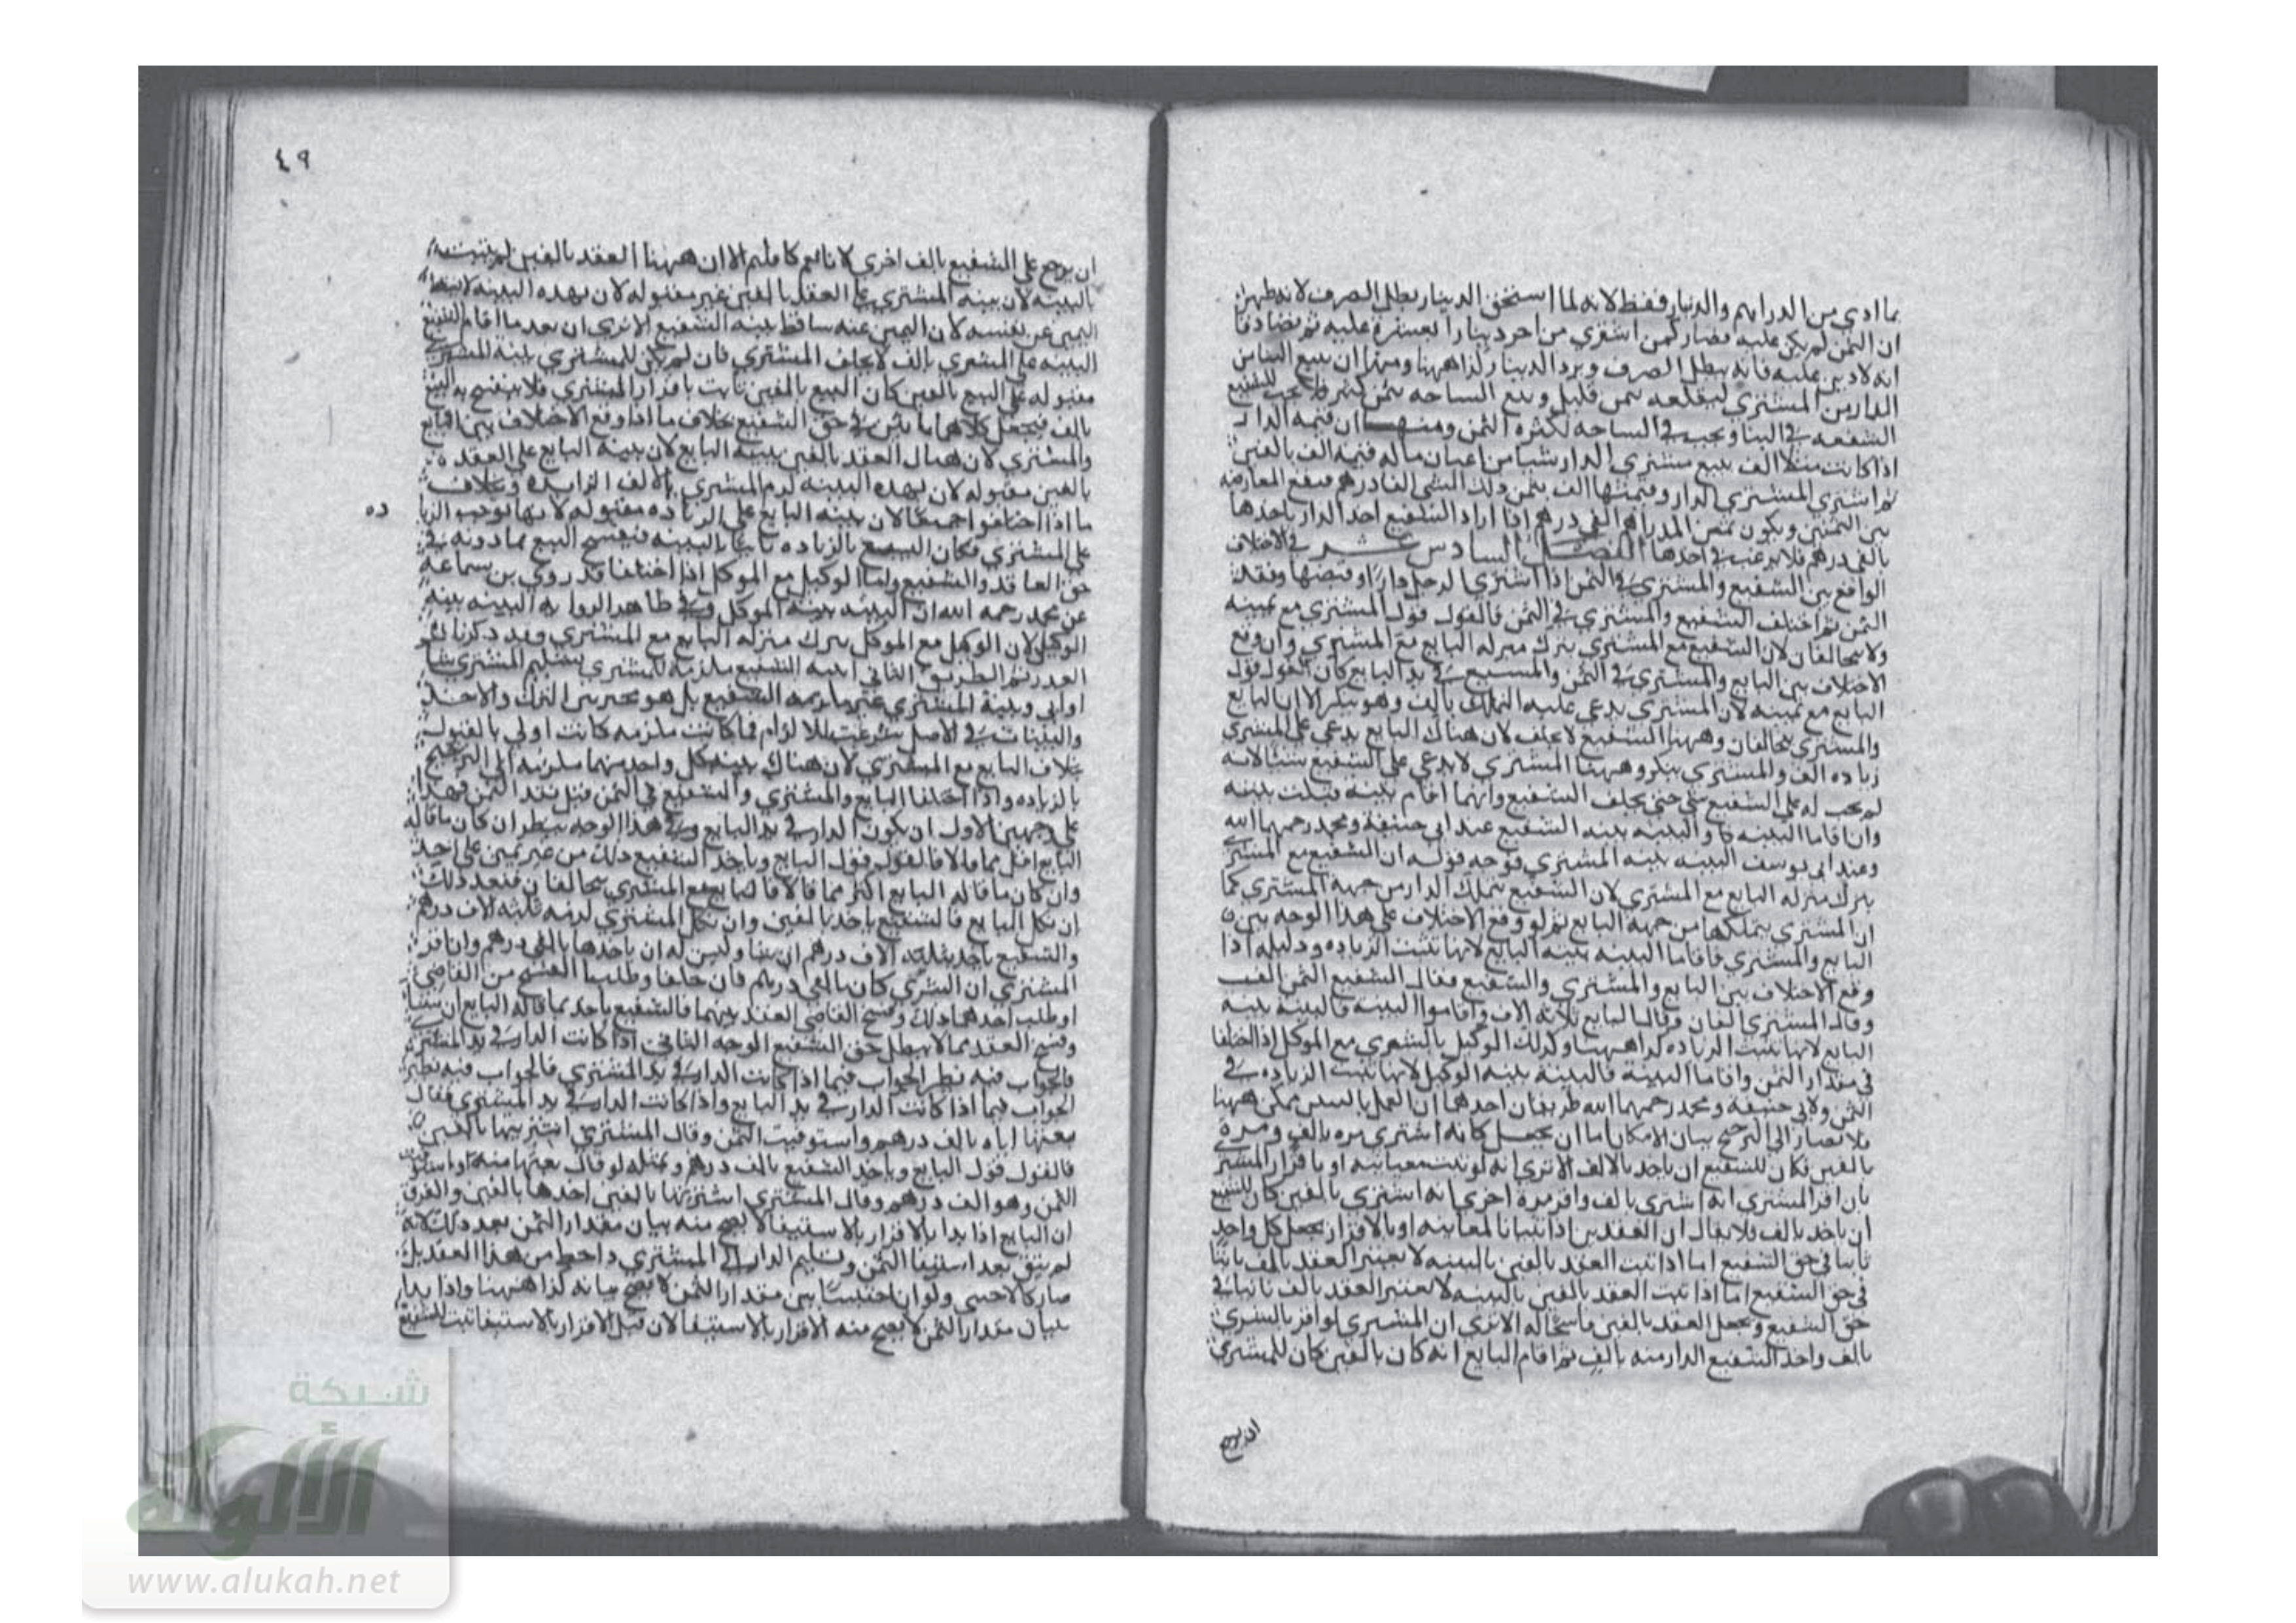 بما ادي من الدراهم والدنيار فقط لانه لما استحق الدينار بطل الصرف لانه ظهر
ان الثمن لم يكن عليه فصار كمن اشتري من اخر دينارا بعشرة عليه ثم تصادقا
انه لا دين عليه فانه يبطل الصرف ويرد الدينار كذا ههنا ومنها ان يبيع البنا من
الدار من المشتري ليقلعه بثمن قليل ويبيع الساحه بثمن كثير للشفيع
الشفعه في البنا ويجب في الساحه لكثرة الثمن ومنها ان قيمه الدار
اذا كانت مثلا الف يبيع مشتري الدار شيا من اعيان ماله قيمته الف بالفين
ثم اشتري المشتري الدار وقيمتها الف بثمن ذلك الشي الفا درهم فيقع المعارضه
بين الثمنين ويكون ثمن الدار الفي درهم اذا اراد الشفيع اخذ الدار ياخذها
بالفي درهم فلا يرغب في اخذها الفصل السادس عشر في الاختلاف
الواقع بين الشفيع والمشتري في الثمن اذا اشتري الرجل دارا وقبضها ونقد
الثمن ثم اختلف الشفيع والمشتري في الثمن فالقول قول المشتري مع يمينه
ولا يتحالفان لان الشفيع مع المشتري ينزل منزله البايع مع المشتري وان وقع
الاختلاف بين البايع والمشتري في الثمن والمبيع في يد البايع كان القول قول
البايع مع يمينه لان المشتري يدعي عليه التملك بالف وهو ينكر الا ان البايع
والمشتري يتحالفان وههنا الشفيع لا يحلف لان هناك البايع يدعي علي المشتري
زياده الف والمشتري ينكر وههنا المشتري لا يدعي علي الشفيع شيا لانه
لم يجب له علي الشفيع شي حتي يحلف الشفيع وايهما اقام بينه قبلت بينته
وان اقاما البينه فالبينه بينه الشفيع عند ابي حنيفة ومحمد رحمهما الله
وعند ابي يوسف البينه بينه المشتري فوجه قوله ان الشفيع مع المشتري
ينزل منزله البايع مع المشتري لان الشفيع يتملك الدار من جهة المشتري كما
ان المشتري يتملكها من جهة البايع ثم لو وقع الاختلاف علي هذا الوجه بين
البايع والمشتري فاقاما البينه بينه البايع لانها تثبت الزياده ودليله اذا
وقع الاختلاف بين البايع والمشتري والشفيع فقال الشفيع الثمن الف
وقال المشتري الفان وقال البايع ثلاثه الاف واقاموا البينة فالبينة بينة
البايع لانها تثبت الزياده كذا ههنا وكذلك الوكيل بالشري مع الموكل اذا اختلفا
في مقدار الثمن واقاما البينة فالبينة بينه الوكيل لانها تثبت الزياده في
الثمن ولابي حنيفة ومحمد رحمهما الله طريقان احدهما ان العمل بالبينتين ممكن ههنا
فلا يصار الي الترجيح بيان الامكان اما ان يجعل كانه اشتري مره بالف ومرة
بالفين فكان للشفيع ان ياخذ بالالف الا تري انه لو ثبت معاينه او باقرار المشتري
بان اقر المشتري انه اشتري بالف واقر مرة اخري انه اشتري بالفين كان للشفيع
ان ياخذ بالف فلا يقال ان العقدين اذا ثبتا بالمعاينه او بالاقرار يجعل كل واحد
ثابتا في حق الشفيع اما اذا ثبت العقد بالفين بالبينه لا يعتبر العقد بالف ثابتا
في حق الشفيع اما اذا ثبت العقد بالفين بالبينه لا يعتبر العقد بالف ثابتا في
حق الشفيع ويجعل العقد بالفين الا تري ان المشتري لو اقر بالشري
بالف واخذ الشفيع الدار منه بالف ثم اقام البايع انه كان بالفين كان للمشتري
ان يرجع
٤٩
ان يرجع علي الشفيع بالف اخري الا ان ههنا العقد بالفين لم يثبت
بالبينه لان بينه المشتري علي العقد بالفين غير مقبوله لان بهذه البينه
اليمين عن نفسه لان اليمين عنه ساقط ببينه الشفيع الا تري ان بعد ما اقام الشفيع
البينه علي الشري بالف لا يحلف المشتري فان لم يكن للمشتري بينة المشتري
مقبوله علي البيع بالفين كان البيع بالفين ثابت باقرار المشتري فلا ينفسخ به البيع
بالف فيجعل كلاهما ثابتين في حق الشفيع بخلاف ما اذا وقع الاختلاف بين البايع
والمشتري لان هناك العقد بالفين ببينة البايع لان بينه البايع علي العقد
بالفين مقبوله لان بهذه البينه لزم المشتري بالالف الزايده وبخلاف
ما اذا اختلفوا جميعا لان بينه البايع علي الزياده مقبوله لانها توجب الزيا
ده
علي المشتري فكان البيع بالزياده ثابتا بالبينه فينفسخ البيع بما دونه في
حق العاقد والشفيع واما الوكيل مع الموكل اذا اختلفا فقد روي بن سماعه
عن محمد رحمه الله ان البينه بينة الموكل وفي ظاهر الروايه البينه بينه
الوكيل لان الوكيل مع الموكل ينزل منزله البايع مع المشتري وقد ذكرنا
العذر ثم الطريق الثاني ان بينه الشفيع ملزمه للمشتري بتسليم المشتري شا
او ابي وبينة المشتري غير ملزمه الشفيع بل هو مخير بين الترك والاخذ
والبينات في الاصل شرعت للالزام فما كانت ملزمه كانت اولي بالقبول
بخلاف البايع مع المشتري لان هناك بينه كل واحد منهما ملزمه الي الترجيح
بالزياده واذا اختلفا البايع والمشتري والشفيع في الثمن قبل نقد الثمن فهذا
علي وجهين الاول ان يكون الدار في يد البايع وفي هذا الوجه ينظر ان كان ما قاله
البايع اقل مما قالا فالقول قول البايع وياخذ الشفيع ذلك من غير يمين علي احد
وان كان ما قاله البايع اكثر مما قالا فالبايع مع المشتري يتحالفان فبعد ذلك
ان نكل البايع فالشفيع ياخذ بالفين وان نكل المشتري لزمه ثلثه الاف درهم
والشفيع ياخذ بثلثه الاف درهم ان شا وليس له ان ياخذها بالفي درهم وان اقر
المشتري ان الشري كان بالفي درهم فان حلفا وطلبا الفسخ من القاضي
او طلب احدهما ذلك وفسخ القاضي العقد بينهما فالشفيع ياخذ بما قاله البايع ان شا
وفسخ العقد مما لا يبطل حق الشفيع الوجه الثاني اذا كانت الدار في يد المشتري
فالجواب فيه نظير الجواب فيما اذا كانت الدار في يد المشتري فالجواب فيه نظير
الجواب فيما اذا كانت الدار في يد البايع واذا كانت الدار في يد المشتري فقال
بعتها اياه بالف درهم واستوفيت الثمن وقال المشتري اشتريتها بالفين
فالقول قول البايع وياخذ الشفيع بالف درهم وبمثله لو قال بعتها منه واستوفيت
الثمن وهو الف درهم وقال المشتري اشتريتها بالفين اخذها بالفين والفرق
ان البايع اذا بدا بالاقرار بالاستيفا لا يصح منه بيان مقدار الثمن بعد ذلك لانه
لم يبق بعد استيفا الثمن وتسليم الدار الي المشتري من هذا العقد بل
صار كالاجنبي ولو ان اجنبيا بين مقدار الثمن لا يصح بيانه كذا ههنا واذا بدا
ببيان مقدار الثمن لا يصح منه الاقرار بالاستيفا لان قبل الاقرار بالاستيفا ثبت للشفيع
شبكة
الألوكة
www.alukah.net